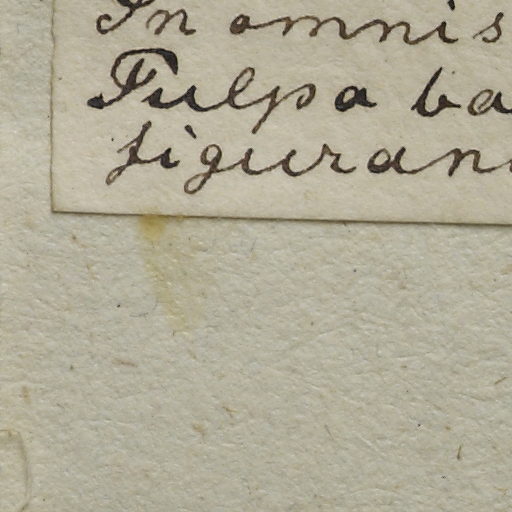 In omnis
Tulpa ba
figuran